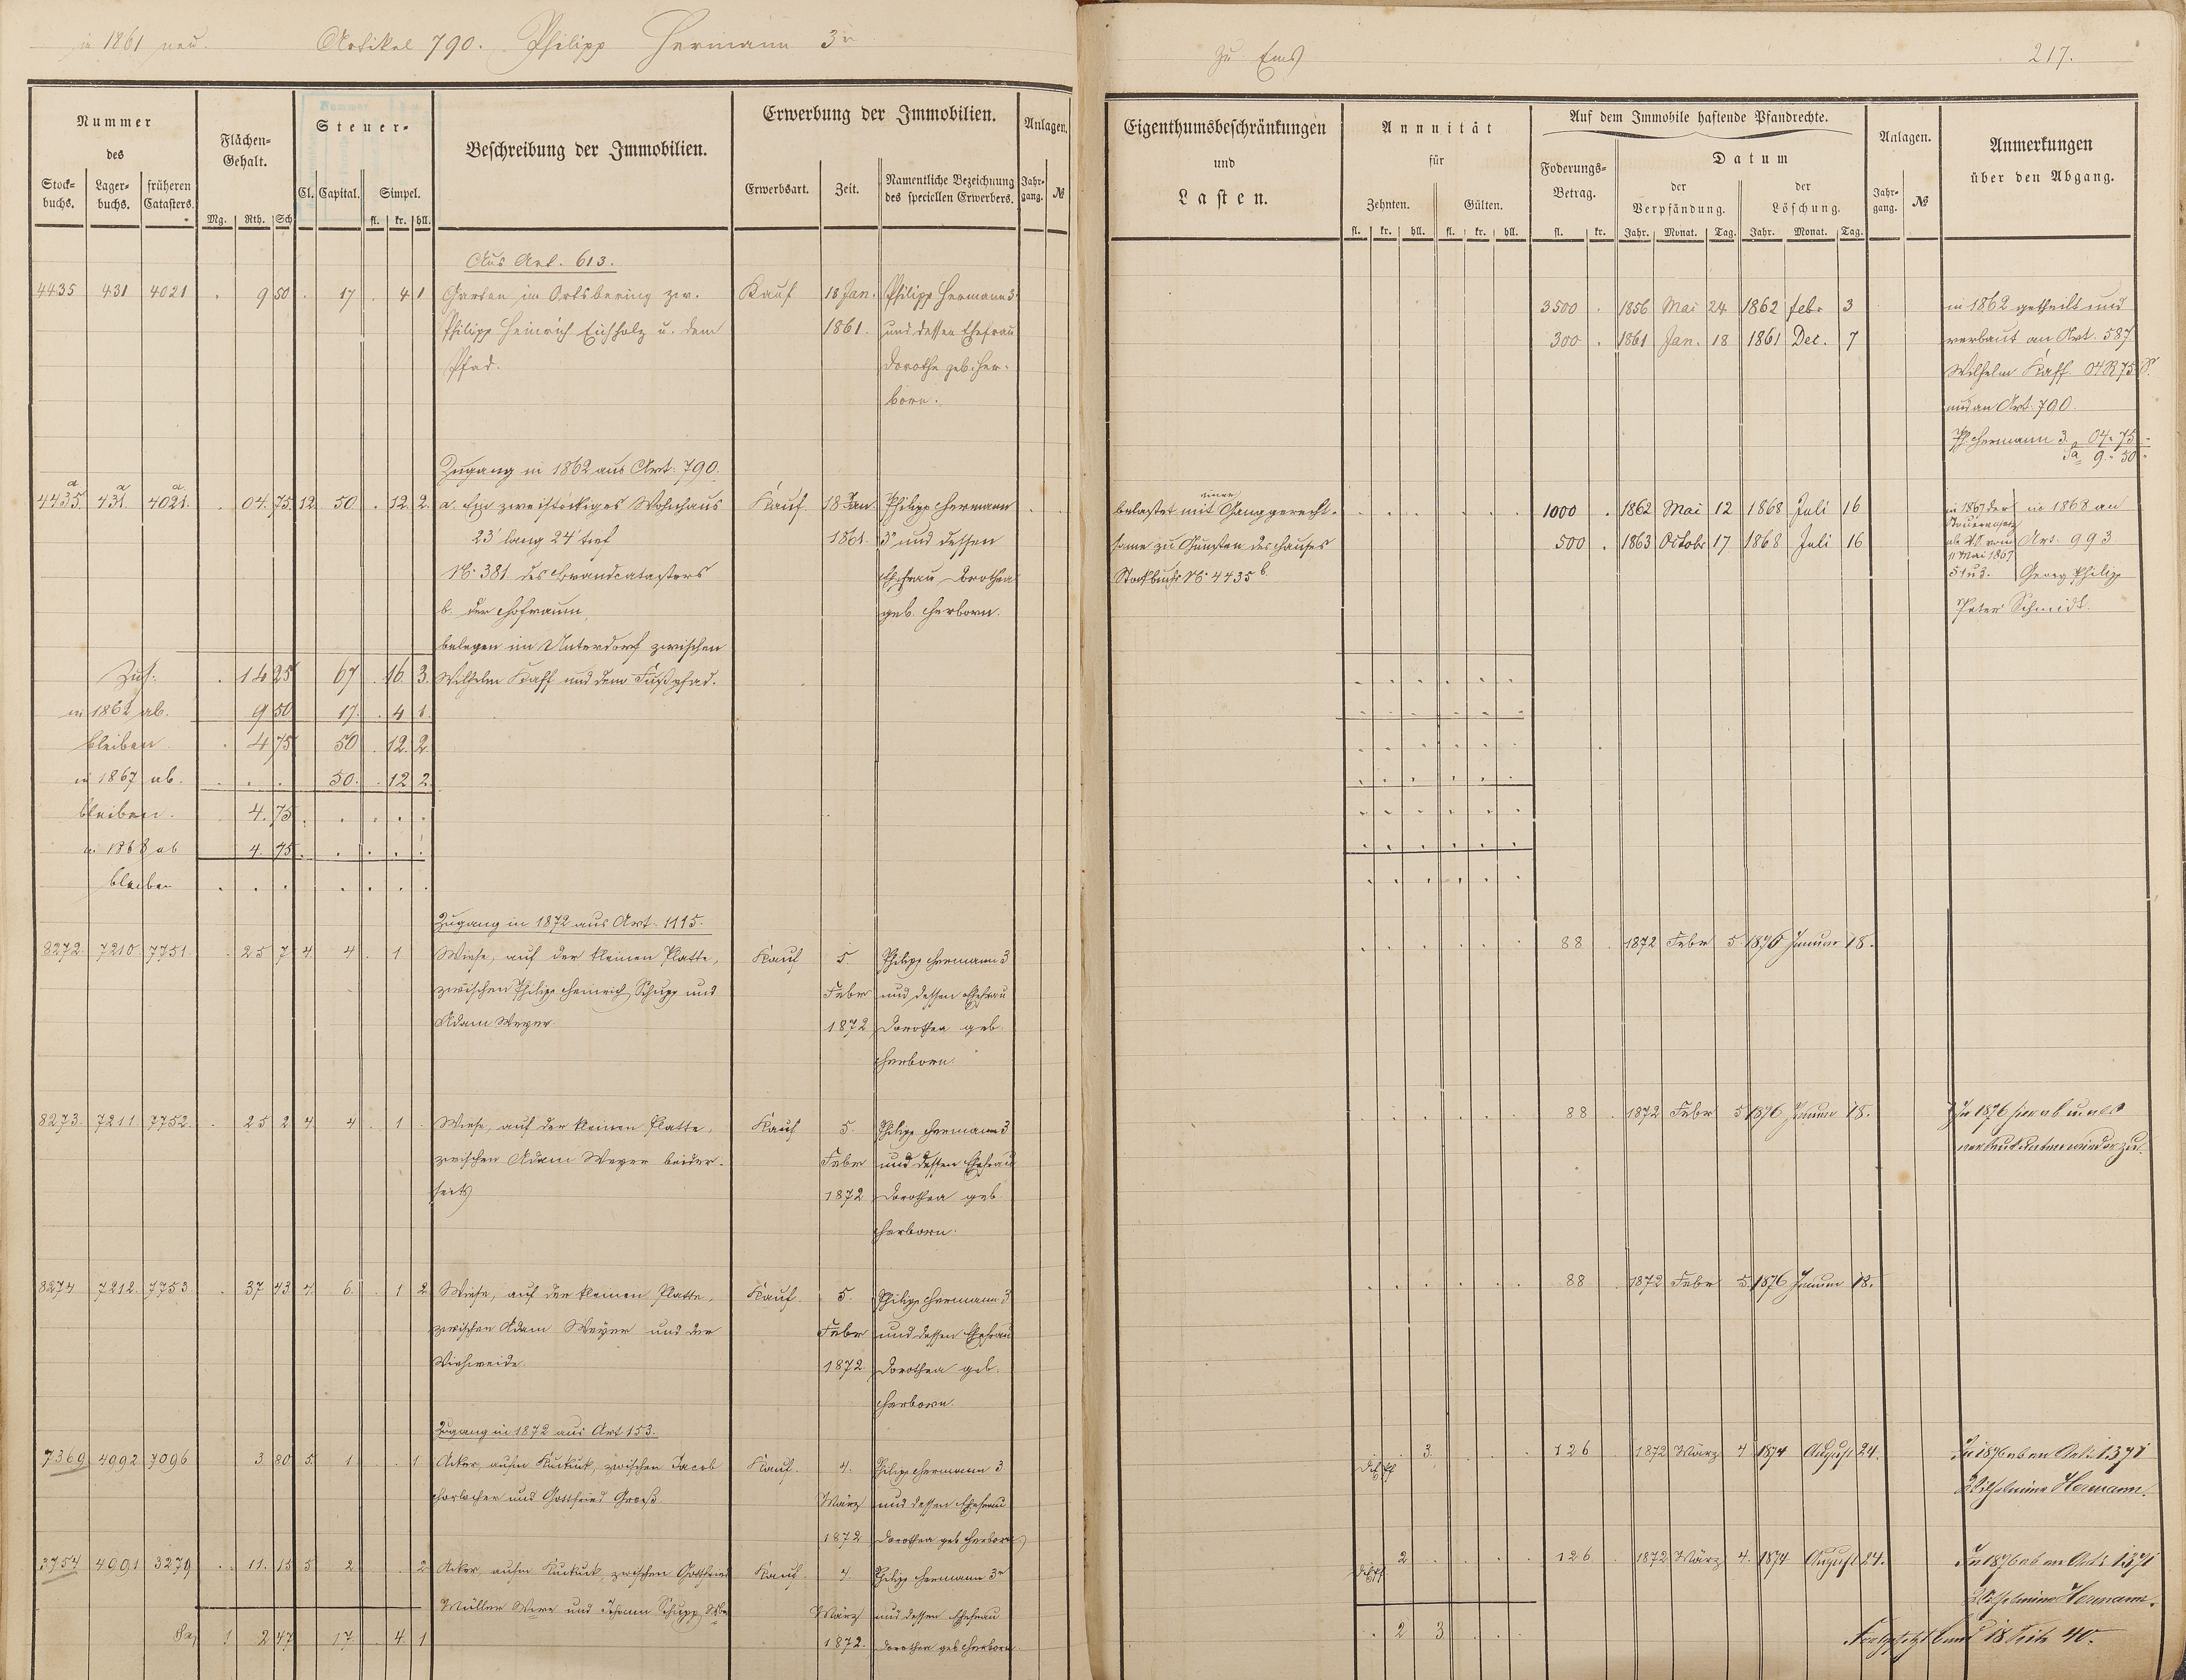 in 1861 neu. Artikel 790. Philipp Hermann 3r
zu Ems 217.
Nummer des
Stock-buchs. Lager-buchs. früheren Catasters.
Flächen-Gehalt.
Mg. Rth. Sch
Steuer-
Cl. Capital. Simpel.
fl. kr. hll.
Beschreibung der Immobilien.
Erwerbung der Immobilien.
Erwerbsart. Zeit. Namentliche Bezeichnung des speciellen Erwerbers.
Anlagen.
Jahr-gang. №
Eigenthumsbeschränkungen
und
Lasten.
Annuität
für
Zehnten. Gülten.
fl. kr. hll. fl. kr. hll.
Auf dem Immobile haftende Pfandrechte.
Foderungs-Betrag.
fl. kr.
Datum
der Verpfändung. der Löschung.
Jahr. Monat. Tag. Jahr. Monat. Tag.
Anlagen.
Jahr-gang. №
Anmerkungen
über den Abgang.
Aus Art. 613.
4435 431 4021 . 9 50 . 17 . 4 1 Garten im Ortsbering zw. Kauf 18 Jan. Philipp Hermann 3r
Philipp Heinrich Eichholz u. dem 1861. und dessen Ehefrau
Pfad. Dorothe geb. Her-
born.
3500 . 1856 Mai 24 1862 febr 3 in 1862 getheilt und
300 . 1861 Jan. 18 1861 Dec. 7 verbaut an Art. 587.
Wilhelm Kaff 04 R 75 S.
und an Art. 790.
Ph. Hermann 3. 04. 75
Sa 9. 50
Zugang in 1862 aus Art. 790.
4435a 431a 4021a . 04. 75 12 50 . 12. 2. a. Ein zweistöckiges Wohnhaus Kauf. 18 Jan Philipp Hermann
23' lang 24' tief 1861. 3r und dessen
N. 381 des Brandcatasters Ehefrau Dorothea
b. der Hofraum, geb. Herborn.
belegen im Unterdorf zwischen
Wilhelm Kaff und dem Fußpfad.
belastet mit einer Ganggerecht-
same zu Gunsten des Hauses
Stockbuchs N. 4435 b.
1000 . 1862 Mai 12 1868 Juli 16
500 . 1863 Octobr 17 1868 Juli 16
in 1867 der
vom
11 Mai 1867
in 1868 an
Art. 993
Georg Philipp
Peter Schmidt.
Zus. . 14 25 67 . 16 3.
in 1862 ab. 9 50 17. . 4 1.
bleiben . 4 75 50 . 12. 2.
in 1867 ab. . . . 50. . 12 2
bleiben. 4. 75 . . . .
in 1868 ab 4. 75 . . . .
bleiben . . . . . . .
Zugang in 1872 aus Art. 1115.
8272 7210 7751 . 25 7 4. 4 . 1 Wiese, auf der kleinen Platte, Kauf 5. Philipp Hermann 3
zwischen Philipp Heinrich Schupp und Febr und dessen Ehefrau
Adam Weyer 1872 Dorothea geb.
Herborn.
88 . 1872 Febr 5. 1876 Januar 18.
8273 7211 7752. . 25 2 4. 4 . 1 . Wiese, auf der kleinen Platte, Kauf 5. Philipp Hermann 3
zwischen Adam Weyer beider- Febr und dessen Ehefrau
seits 1872 Dorothea geb
Herborn.
88 . 1872 Febr 5 1876 Januar 18.
In 1876
8274 7212. 7753 . 37 43 4. 6. . 1 2 Wiese, auf der kleinen Platte, Kauf. 5. Philipp Hermann 3
zwischen Adam Weyer und der Febr und dessen Ehefrau
Viehweide. 1872. Dorothea geb.
Herborn.
88 . 1872 Febr 5 1876 Januar 18.
Zugang in 1872 aus Art 153.
7369 4992 7096 3 80 5. 1 . . 1 Acker, aufm Kukuk, zwischen Jacob Kauf. 4. Philipp Hermann 3
und Gottfried März und dessen Ehefrau
1872 Dorothea geb Herborn
3. 126 1872 März 4 1874 August 24. In 1876 ab an Art. 1371
Wilhelmine Hermann.
3754 4991 3279 . . 11. 15 5 2 . . 2 Acker, aufm Kukuk, zwischen Kauf. 4. Philipp Hermann 3r
Müller und Johann Schupp März und dessen Ehefrau
1872. Dorothea geb Herborn
2 126 1872 März 4. 1874 August 24. In 1876 ab an Art. 1371
Wilhelmine Hermann.
Sa, 1 2 47 17. . 4. 1
. 2 3
Fortgesetzt Band 18 Seite 40.